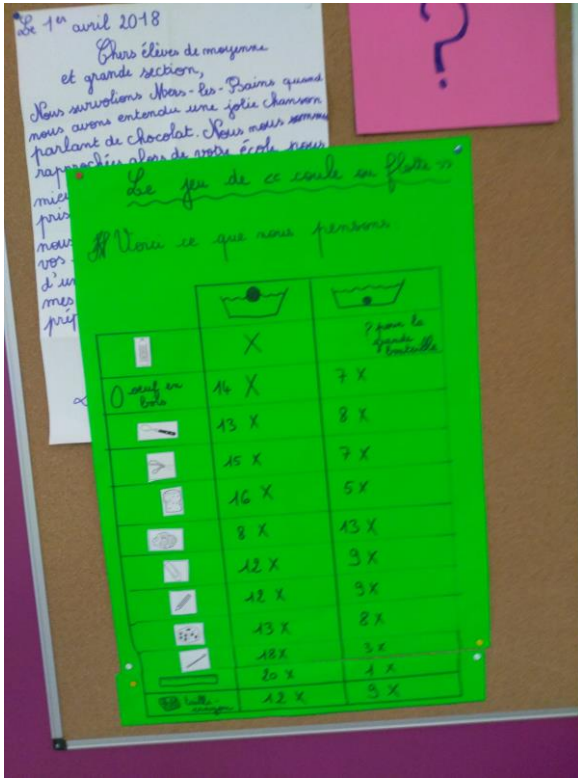 Le 1er avril 2018
Chers élèves de moyenne
et grande section,
Nous survolions Mers-les-Bains quand
nous avons entendu une jolie chanson
parlant de chocolat. Nous nous sommes
rapprochés alors de votre école pour
mieu
pris
nous
vos
d'un
mes
prép
?
Le jeu de « coule ou flotte »
Voici ce que nous pensons
X ? pour la
grande
bouteille
oeuf en
bois 14 X 7 X
13 X 8 X
15 X 7 X
16 X 5 X
8 X 13 X
12 X 9 X
12 X 9 X
13 X 8 X
18 X 3 X
20 X 1 X
taille-
crayon 12 X 9 X